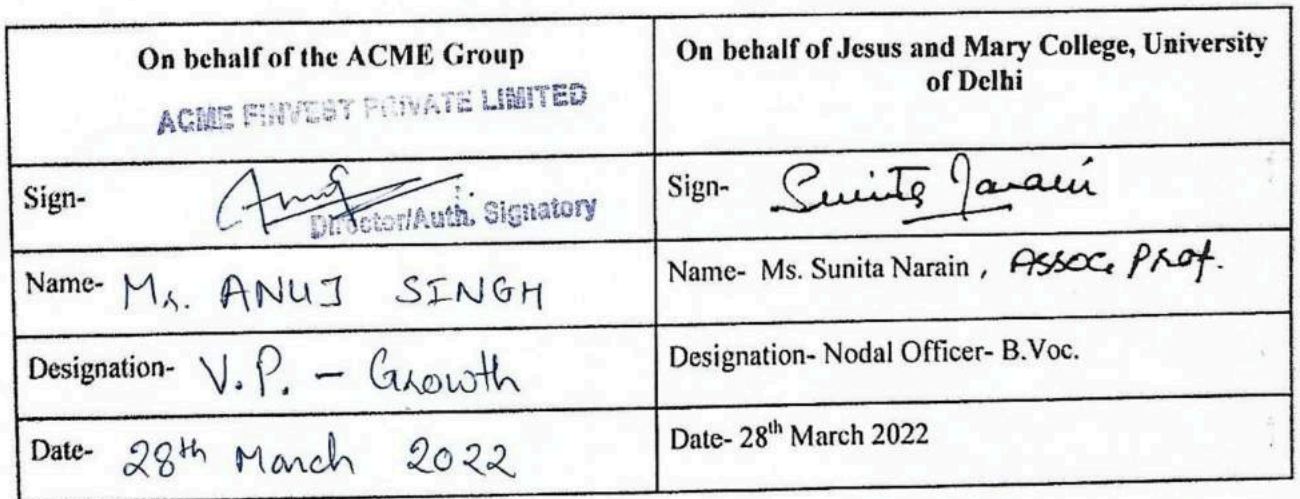 On behalf of the ACME Group
ACME FINVEST PRIVATE LIMITED
On behalf of Jesus and Mary College, University
of Delhi
Sign-
Director/Auth. Signatory
Sign- Sunita Narain
Name- Mr. ANUJ SINGH
Name- Ms. Sunita Narain , Assoc. Prof.
Designation- V.P. – Growth
Designation- Nodal Officer- B.Voc.
Date- 28th March 2022
Date- 28th March 2022